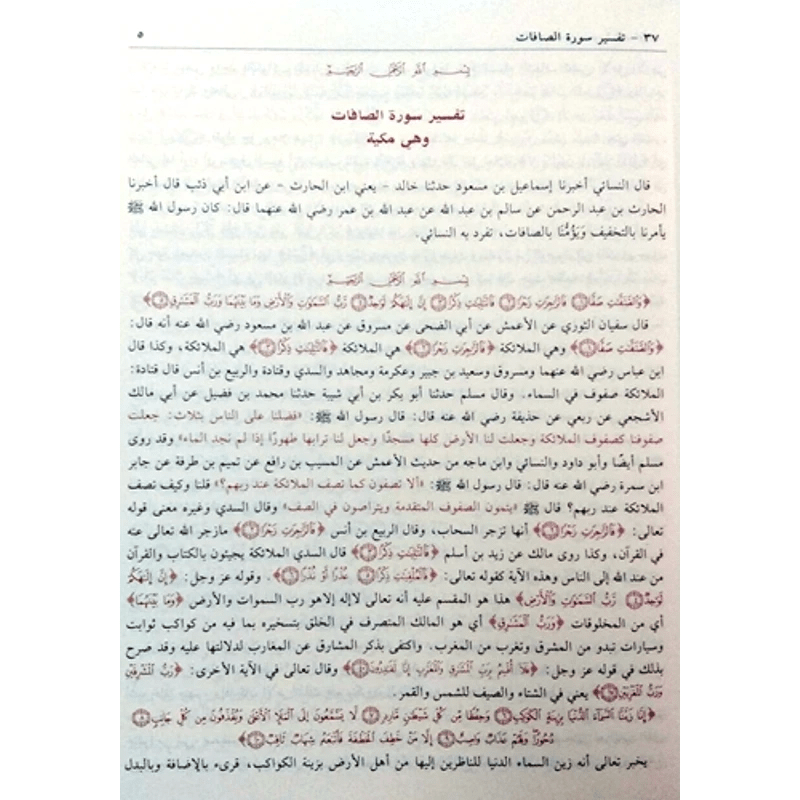 ٣٧ - تفسير سورة الصافات ٥
بسم الله الرحمن الرحيم
تفسير سورة الصافات
وهي مكية
قال النسائي أخبرنا إسماعيل بن مسعود حدثنا خالد - يعني ابن الحارث - عن ابن أبي ذئب قال أخبرنا
الحارث بن عبد الرحمن عن سالم بن عبد الله عن عبد الله بن عمر رضي الله عنهما قال: كان رسول الله ﷺ
يأمرنا بالتخفيف وَيَؤُمُّنَا بالصافات، تفرد به النسائي.
بسم الله الرحمن الرحيم
﴿وَالصَّافَّاتِ صَفًّا ۝١ فَالزَّاجِرَاتِ زَجْرًا ۝٢ فَالتَّالِيَاتِ ذِكْرًا ۝٣ إِنَّ إِلَهَكُمْ لَوَاحِدٌ ۝٤ رَبُّ السَّمَوَاتِ وَالْأَرْضِ وَمَا بَيْنَهُمَا وَرَبُّ الْمَشَارِقِ ۝٥﴾
قال سفيان الثوري عن الأعمش عن أبي الضحى عن مسروق عن عبد الله بن مسعود رضي الله عنه أنه قال:
﴿وَالصَّافَّاتِ صَفًّا ۝١﴾ وهي الملائكة ﴿فَالزَّاجِرَاتِ زَجْرًا ۝٢﴾ هي الملائكة ﴿فَالتَّالِيَاتِ ذِكْرًا ۝٣﴾ هي الملائكة، وكذا قال
ابن عباس رضي الله عنهما ومسروق وسعيد بن جبير وعكرمة ومجاهد والسدي وقتادة والربيع بن أنس قال قتادة:
الملائكة صفوف في السماء. وقال مسلم حدثنا أبو بكر بن أبي شيبة حدثنا محمد بن فضيل عن أبي مالك
الأشجعي عن ربعي عن حذيفة رضي الله عنه قال: قال رسول الله ﷺ: «فضلنا على الناس بثلاث: جعلت
صفوفنا كصفوف الملائكة وجعلت لنا الأرض كلها مسجدًا وجعل لنا ترابها طهورًا إذا لم نجد الماء» وقد روى
مسلم أيضًا وأبو داود والنسائي وابن ماجه من حديث الأعمش عن المسيب بن رافع عن تميم بن طرفة عن جابر
ابن سمرة رضي الله عنه قال: قال رسول الله ﷺ: «ألا تصفون كما تصف الملائكة عند ربهم؟» قلنا وكيف تصف
الملائكة عند ربهم؟ قال ﷺ «يتمون الصفوف المتقدمة ويتراصون في الصف» وقال السدي وغيره معنى قوله
تعالى: ﴿فَالزَّاجِرَاتِ زَجْرًا ۝٢﴾ أنها تزجر السحاب، وقال الربيع بن أنس ﴿فَالزَّاجِرَاتِ زَجْرًا ۝٢﴾ مازجر الله تعالى عنه
في القرآن، وكذا روى مالك عن زيد بن أسلم ﴿فَالتَّالِيَاتِ ذِكْرًا ۝٣﴾ قال السدي الملائكة يجيئون بالكتاب والقرآن
من عند الله إلى الناس وهذه الآية كقوله تعالى: ﴿فَالْمُلْقِيَاتِ ذِكْرًا ۝٥ عُذْرًا أَوْ نُذْرًا ۝٦﴾. وقوله عز وجل: ﴿إِنَّ إِلَهَكُمْ
لَوَاحِدٌ ۝٤ رَبُّ السَّمَوَاتِ وَالْأَرْضِ﴾ هذا هو المقسم عليه أنه تعالى لاإله إلاهو رب السموات والأرض ﴿وَمَا بَيْنَهُمَا﴾
أي من المخلوقات ﴿وَرَبُّ الْمَشَارِقِ﴾ أي هو المالك المتصرف في الخلق بتسخيره بما فيه من كواكب ثوابت
وسيارات تبدو من المشرق وتغرب من المغرب. واكتفى بذكر المشارق عن المغارب لدلالتها عليه وقد صرح
بذلك في قوله عز وجل: ﴿فَلَا أُقْسِمُ بِرَبِّ الْمَشَارِقِ وَالْمَغَارِبِ إِنَّا لَقَادِرُونَ ۝٤٠﴾ وقال تعالى في الآية الأخرى: ﴿رَبُّ الْمَشْرِقَيْنِ
وَرَبُّ الْمَغْرِبَيْنِ ۝١٧﴾ يعني في الشتاء والصيف للشمس والقمر.
﴿إِنَّا زَيَّنَّا السَّمَاءَ الدُّنْيَا بِزِينَةٍ الْكَوَاكِبِ ۝٦ وَحِفْظًا مِّن كُلِّ شَيْطَانٍ مَّارِدٍ ۝٧ لَا يَسَّمَّعُونَ إِلَى الْمَلَإِ الْأَعْلَى وَيُقْذَفُونَ مِن كُلِّ جَانِبٍ ۝٨
دُحُورًا وَلَهُمْ عَذَابٌ وَاصِبٌ ۝٩ إِلَّا مَنْ خَطِفَ الْخَطْفَةَ فَأَتْبَعَهُ شِهَابٌ ثَاقِبٌ ۝١٠﴾
يخبر تعالى أنه زين السماء الدنيا للناظرين إليها من أهل الأرض بزينة الكواكب، قرىء بالإضافة وبالبدل